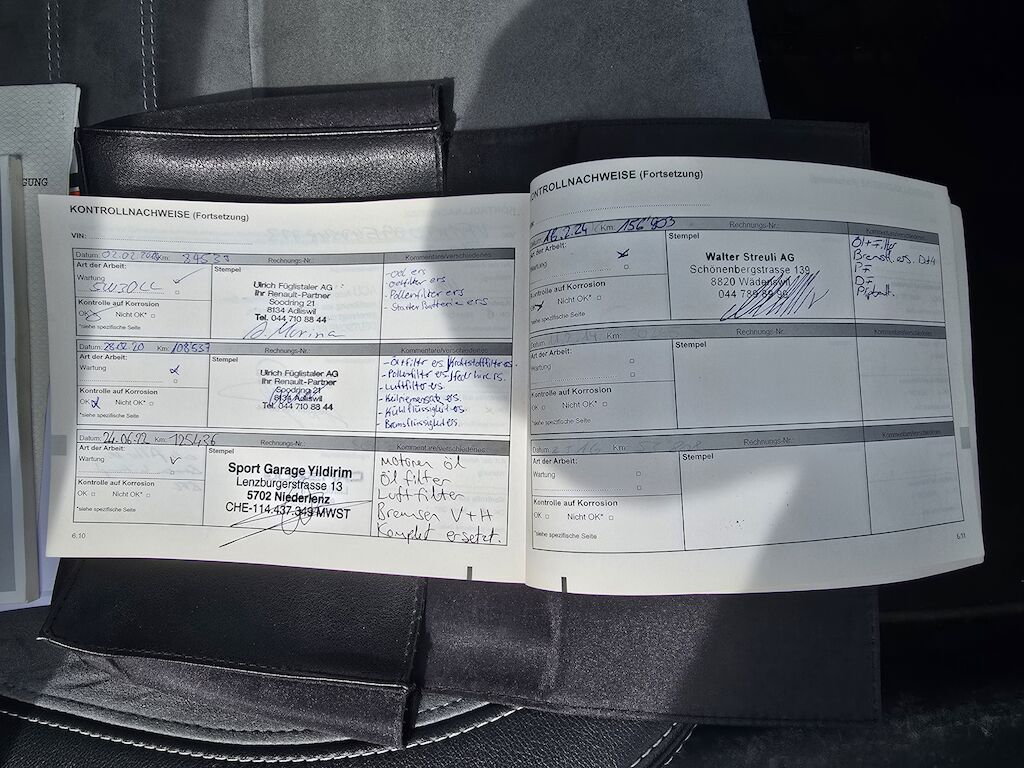 GUNG
KONTROLLNACHWEISE (Fortsetzung)
VIN:
Datum: Km: Rechnungs-Nr.: Kommentare/verschiedenes
Art der Arbeit:
Wartung
Stempel
Ulrich Füglistaler AG
Ihr Renault-Partner
Soodring 21
8134 Adliswil
Tel. 044 710 88 44
Kontrolle auf Korrosion
OK Nicht OK*
*siehe spezifische Seite
- Oel ers
- Oelfilter ers
- Pollenfilter ers
- Starter Batterie ers
Datum: 28.02.20 Km: 108537 Rechnungs-Nr.: Kommentare/verschiedenes
Art der Arbeit:
Wartung
Stempel
Ulrich Füglistaler AG
Ihr Renault-Partner
Soodring 21
8134 Adliswil
Tel. 044 710 88 44
Kontrolle auf Korrosion
OK Nicht OK*
*siehe spezifische Seite
- Öl+Filter ers.
- Pollenfilter ers
- Luftfilter ers.
- Keilriemensatz ers.
- Kühlflüssigkeit ers.
- Bremsflüssigkeit ers.
Datum: 24.06.22 Km: 125436 Rechnungs-Nr.: Kommentare/verschiedenes
Art der Arbeit:
Wartung
Stempel
Sport Garage Yildirim
Lenzburgerstrasse 13
5702 Niederlenz
CHE-114.437.349 MWST
Kontrolle auf Korrosion
OK Nicht OK*
*siehe spezifische Seite
Motoren öl
Öl filter
Luft filter
Bremsen V+H
Komplet ersetzt.
6.10
ONTROLLNACHWEISE (Fortsetzung)
Datum: 16.2.24 Km: 156'903 Rechnungs-Nr.: Kommentare/verschiedenes
Art der Arbeit:
Wartung
Stempel
Walter Streuli AG
Schönenbergstrasse 139
8820 Wädenswil
044 789 89 96
Kontrolle auf Korrosion
OK Nicht OK*
*siehe spezifische Seite
Öl+Filter
PF
DF
Datum: Km: Rechnungs-Nr.: Kommentare/verschiedenes
Art der Arbeit:
Wartung
Stempel
Kontrolle auf Korrosion
OK Nicht OK*
*siehe spezifische Seite
Datum: Km: Rechnungs-Nr.: Kommentare/verschiedenes
Art der Arbeit:
Wartung
Stempel
Kontrolle auf Korrosion
OK Nicht OK*
*siehe spezifische Seite
6.11